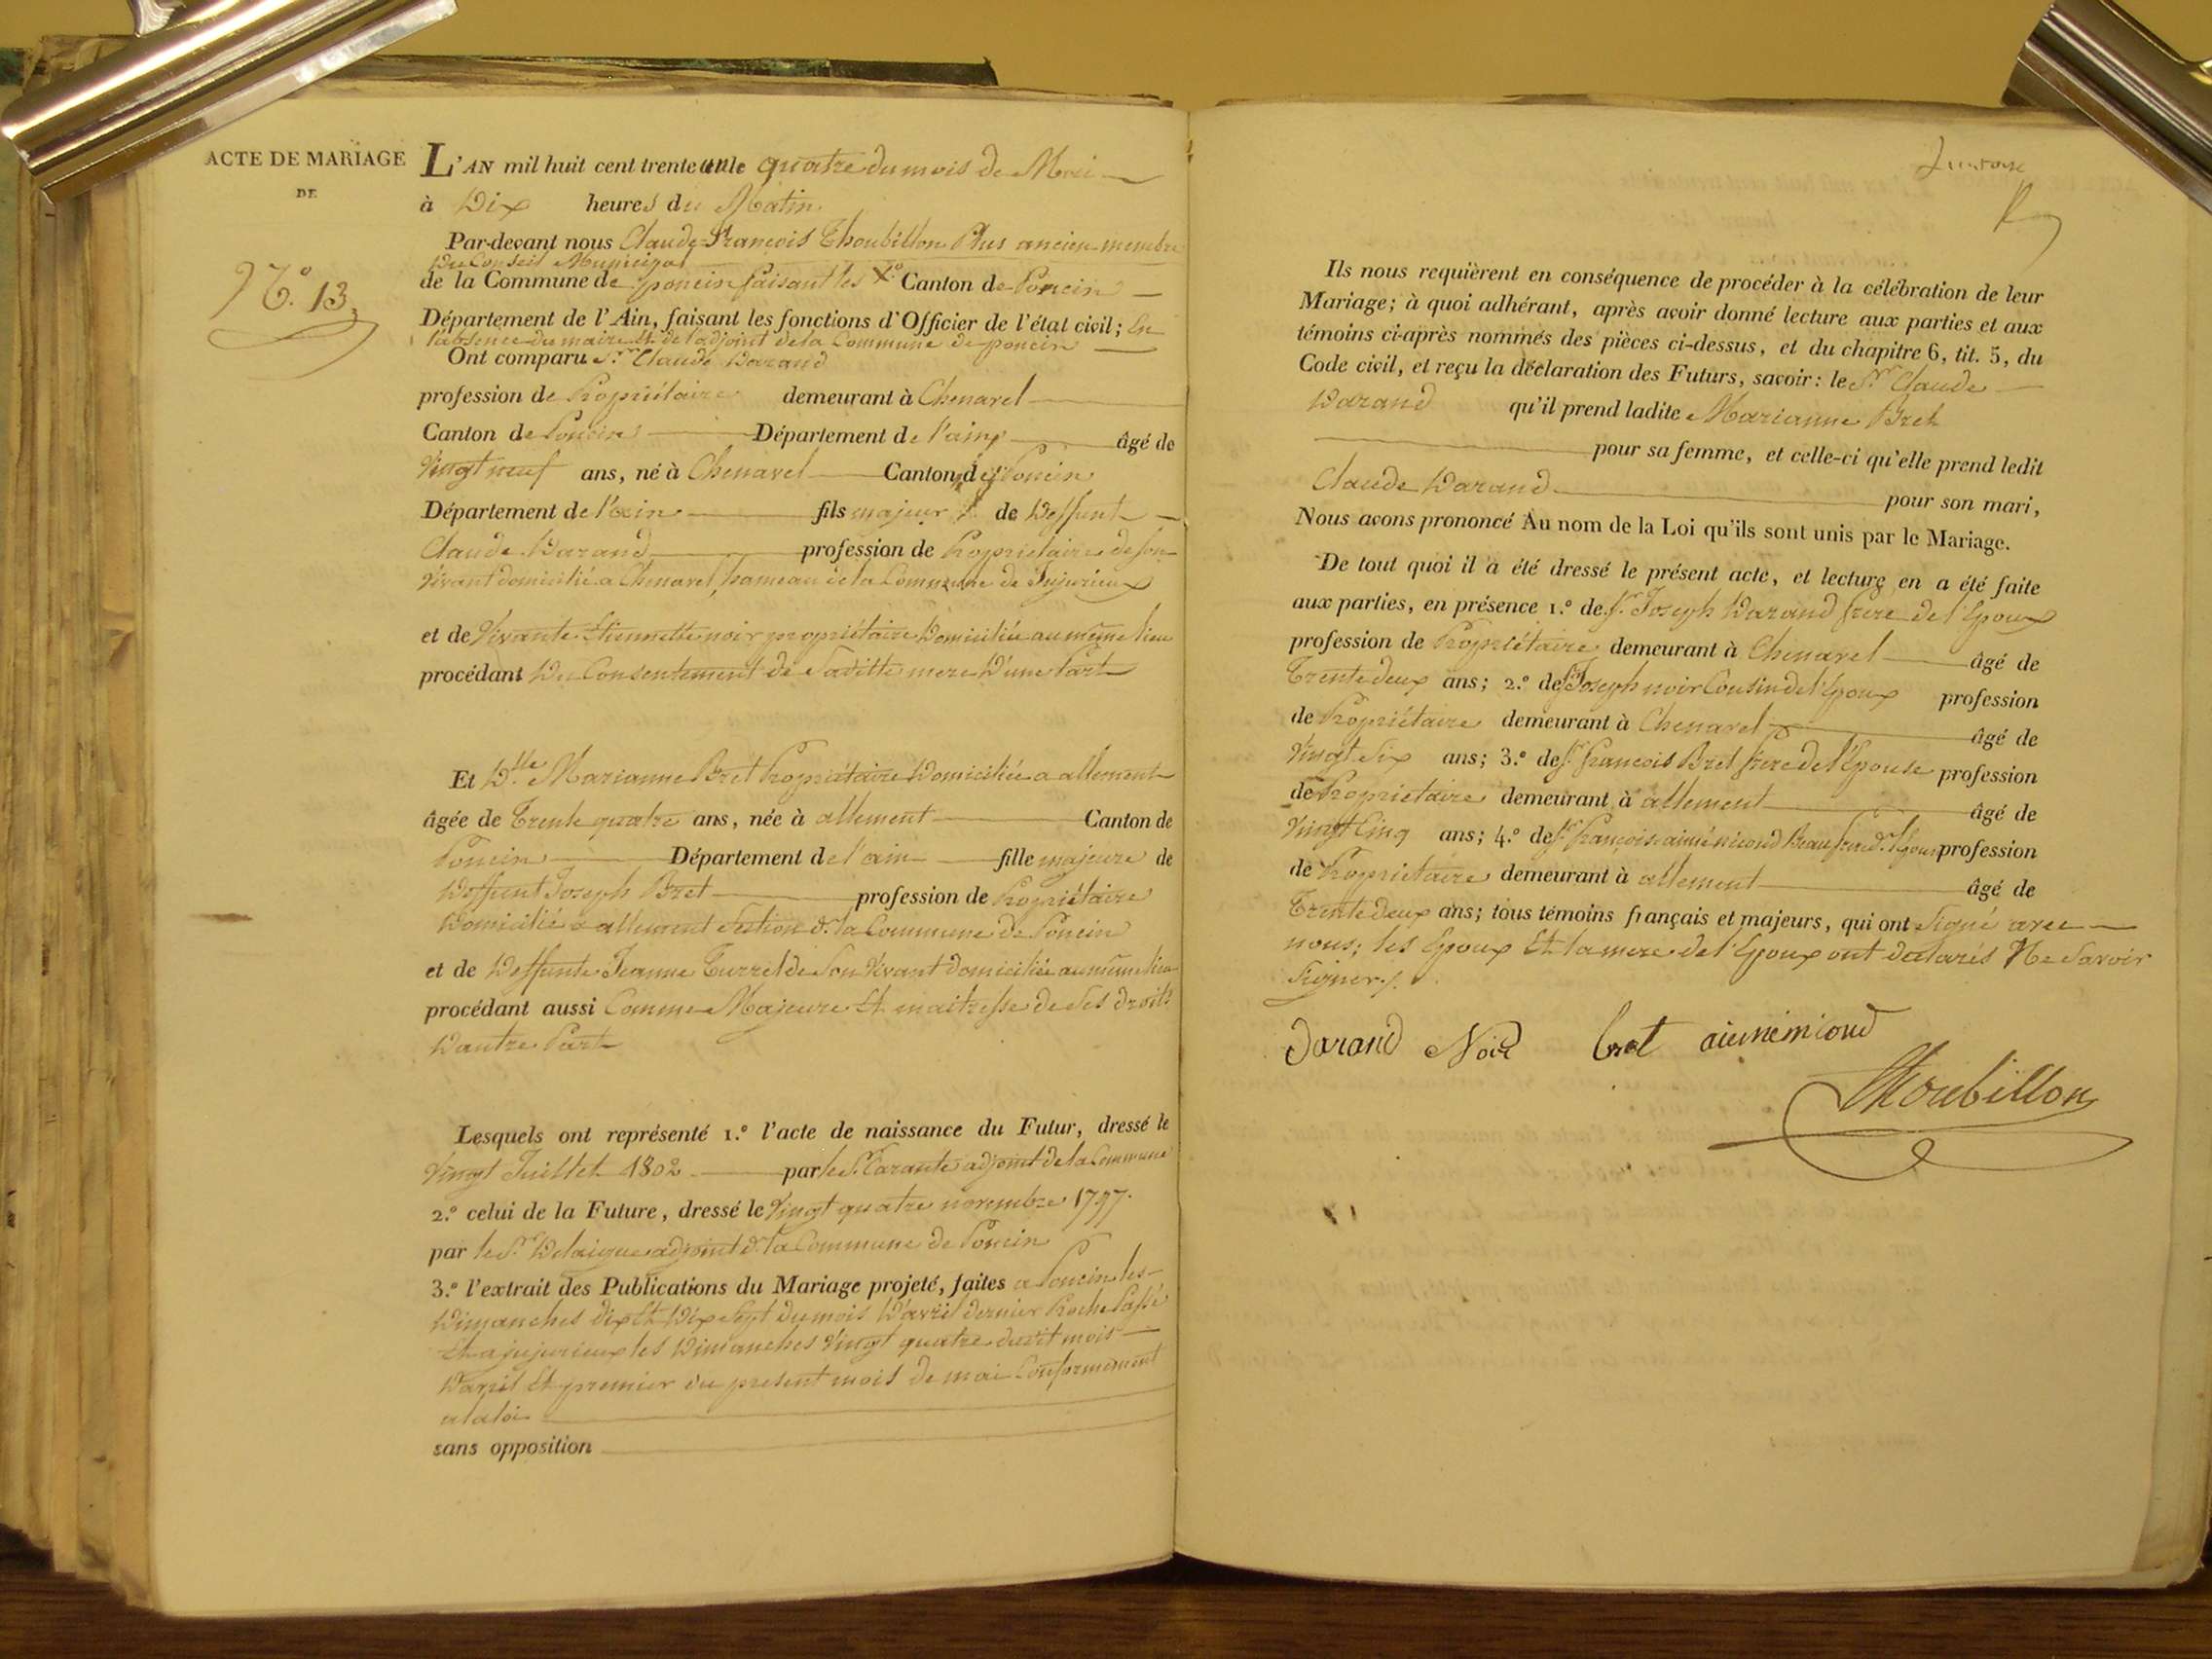 ACTE DE MARIAGE
DE
N.° 13
L'AN mil huit cent trente un le quatre du mois de Mai
à Dix heures du Matin
Par-devant nous Claude François Thoubillon Plus ancien membre
Du Conseil Municipal
de la Commune de poncin faisant les X.° Canton de Poncin
Département de l'Ain, faisant les fonctions d'Officier de l'état civil; En
l'absence du maire Et de l'adjoint de la Commune de poncin
Ont comparu Sr. Claude Darand
profession de Propriétaire demeurant à Chenavel
Canton de Poncin Département de l'ain âgé de
Vingt neuf ans, né à Chenavel Canton de Poncin
Département de l'ain fils majeur de Deffunt
Claude Darand profession de Propriétaire de son
Vivant domicilié a Chenavel, hameau de la Commune de Jujurieux
et de Vivante Etiennette noir propriétaire Domiciliée au même lieu
procédant Du Consentement de Saditte mere D'une Part
Et Dlle Marianne Bret Propriétaire Domiciliée a allement
âgée de Trente quatre ans, née à allement Canton de
Poncin Département de l'ain fille majeure de
Deffunt Joseph Bret profession de Propriétaire
Domicilié a allement Section de la Commune de Poncin
et de Deffunte Jeanne Turrel de Son Vivant domiciliée au même lieu
procédant aussi Comme Majeure Et maitresse de Ses droits
D'autre Part
Lesquels ont représenté 1.° l'acte de naissance du Futur, dressé le
Vingt Juillet 1802 par le Sr. Tarante adjoint de la Commune
2.° celui de la Future, dressé le Vingt quatre novembre 1797.
par le Sr. Delaigue adjoint de la Commune de Poncin
3.° l'extrait des Publications du Mariage projeté, faites a Poncin les
Dimanches dix Et Dix Sept du mois D'avril dernier Proche Passé
Et a jujurieux les Dimanches Vingt quatre dudit mois
D'avril Et premier du present mois de mai Conformement
a la loi
sans opposition
Ils nous requièrent en conséquence de procéder à la célébration de leur
Mariage; à quoi adhérant, après avoir donné lecture aux parties et aux
témoins ci-après nommés des pièces ci-dessus, et du chapitre 6, tit. 5, du
Code civil, et reçu la déclaration des Futurs, savoir: le Sr. Claude
Darand qu'il prend ladite Marianne Bret
pour sa femme, et celle-ci qu'elle prend ledit
Claude Darand pour son mari,
Nous avons prononcé Au nom de la Loi qu'ils sont unis par le Mariage.
De tout quoi il a été dressé le présent acte, et lecture en a été faite
aux parties, en présence 1.° de Sr. Joseph Darand frere de l'Epoux
profession de Propriétaire demeurant à Chenavel âgé de
Trente deux ans; 2.° de Sr. Joseph noir Cousin de l'Epoux profession
de Propriétaire demeurant à Chenavel âgé de
Vingt Six ans; 3.° de Sr. francois Bret frere de l'Epouse profession
de Propriétaire demeurant à allement âgé de
Vingt Cinq ans; 4.° de Sr. françois aimé nicoud Beau frere de l'Epouse profession
de Propriétaire demeurant à allement âgé de
Trente deux ans; tous témoins français et majeurs, qui ont Signé avec
nous; les Epoux Et la mere de l'Epoux ont déclarés Ne Savoir
Signer
Darand Noir bret aiménicoud
Thoubillon